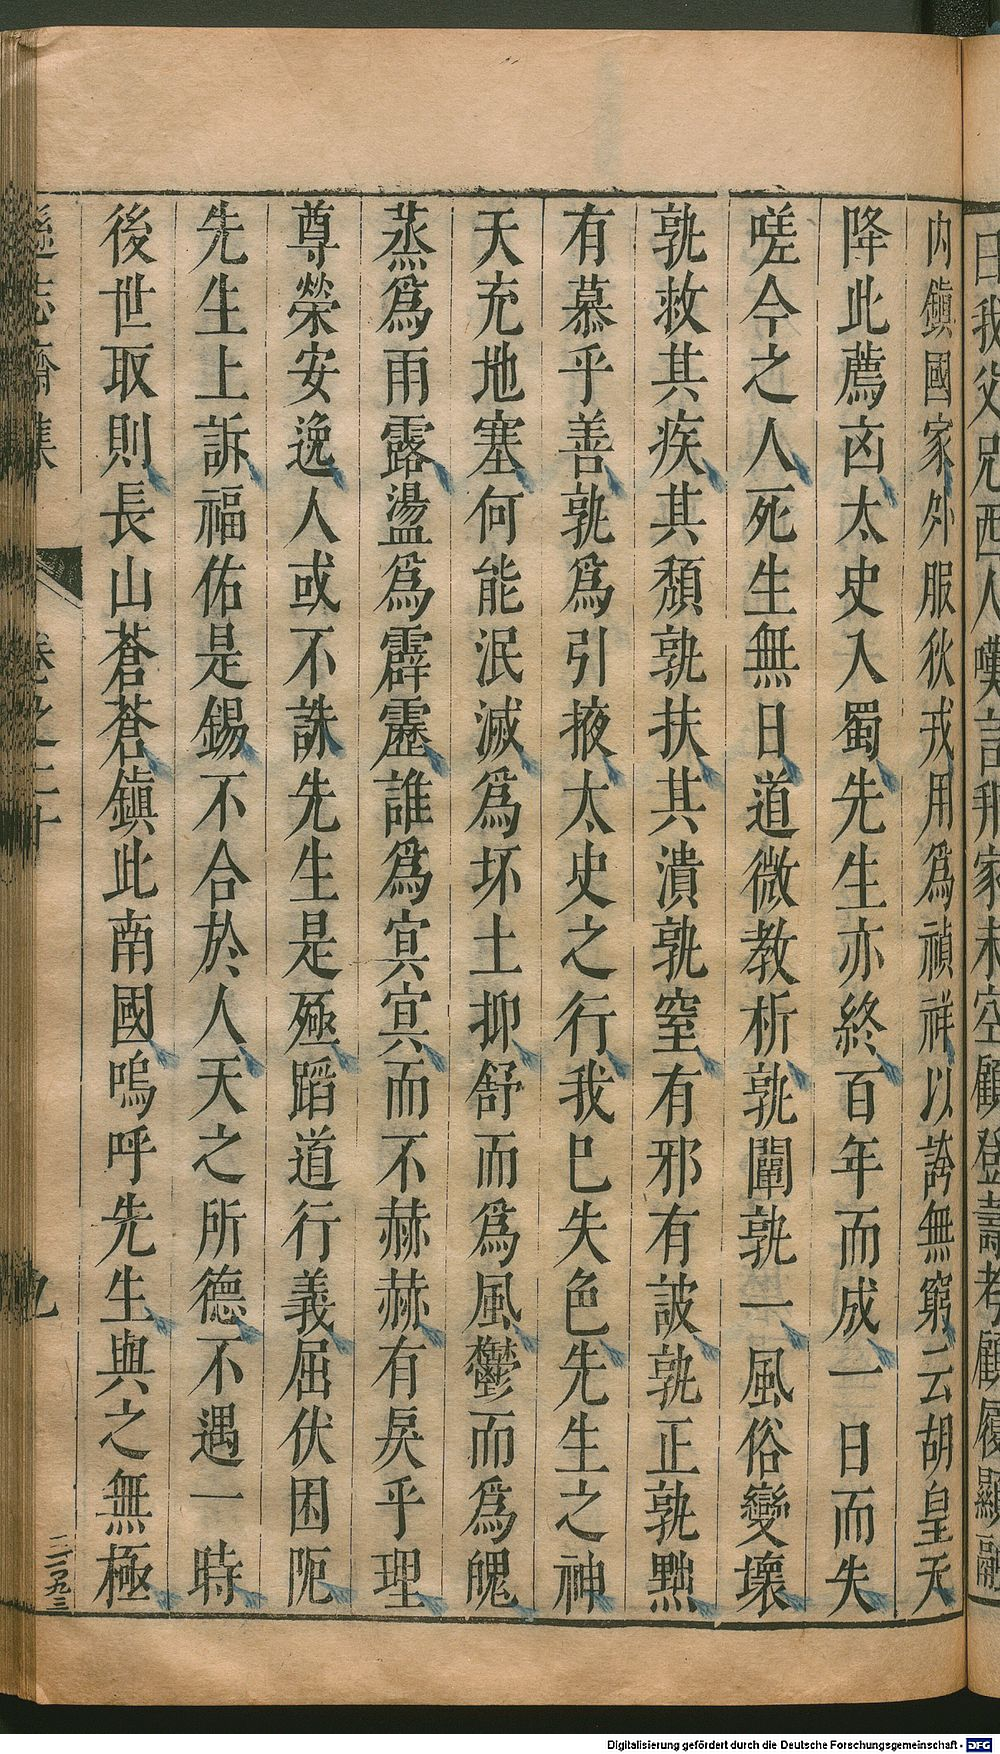 曰我父兄西人嘆詫邦家未空顧登壽考顧履顯融
内鎮國家外服狄戎用爲禎祥以誇無窮云胡皇天
降此薦凶太史入蜀先生亦終百年而成一日而失
嗟今之人死生無日道微教析孰闡孰一風俗變壞
孰救其疾其頹孰扶其潰孰窒有邪有詖孰正孰黜
有慕乎善孰爲引掖太史之行我已失色先生之神
天充地塞何能泯滅爲坏土抑舒而爲風鬱而爲魄
蒸爲雨露盪爲霹靂誰爲冥冥而不赫赫有戾乎理
尊榮安逸人或不誅先生是殛蹈道行義屈伏困阨
先生上訴福佑是錫不合於人天之所德不遇一時
後世取則長山蒼蒼鎮此南國嗚呼先生與之無極
遜志齋集 卷之二十 九
二千〇九三
Digitalisierung gefördert durch die Deutsche Forschungsgemeinschaft - DFG